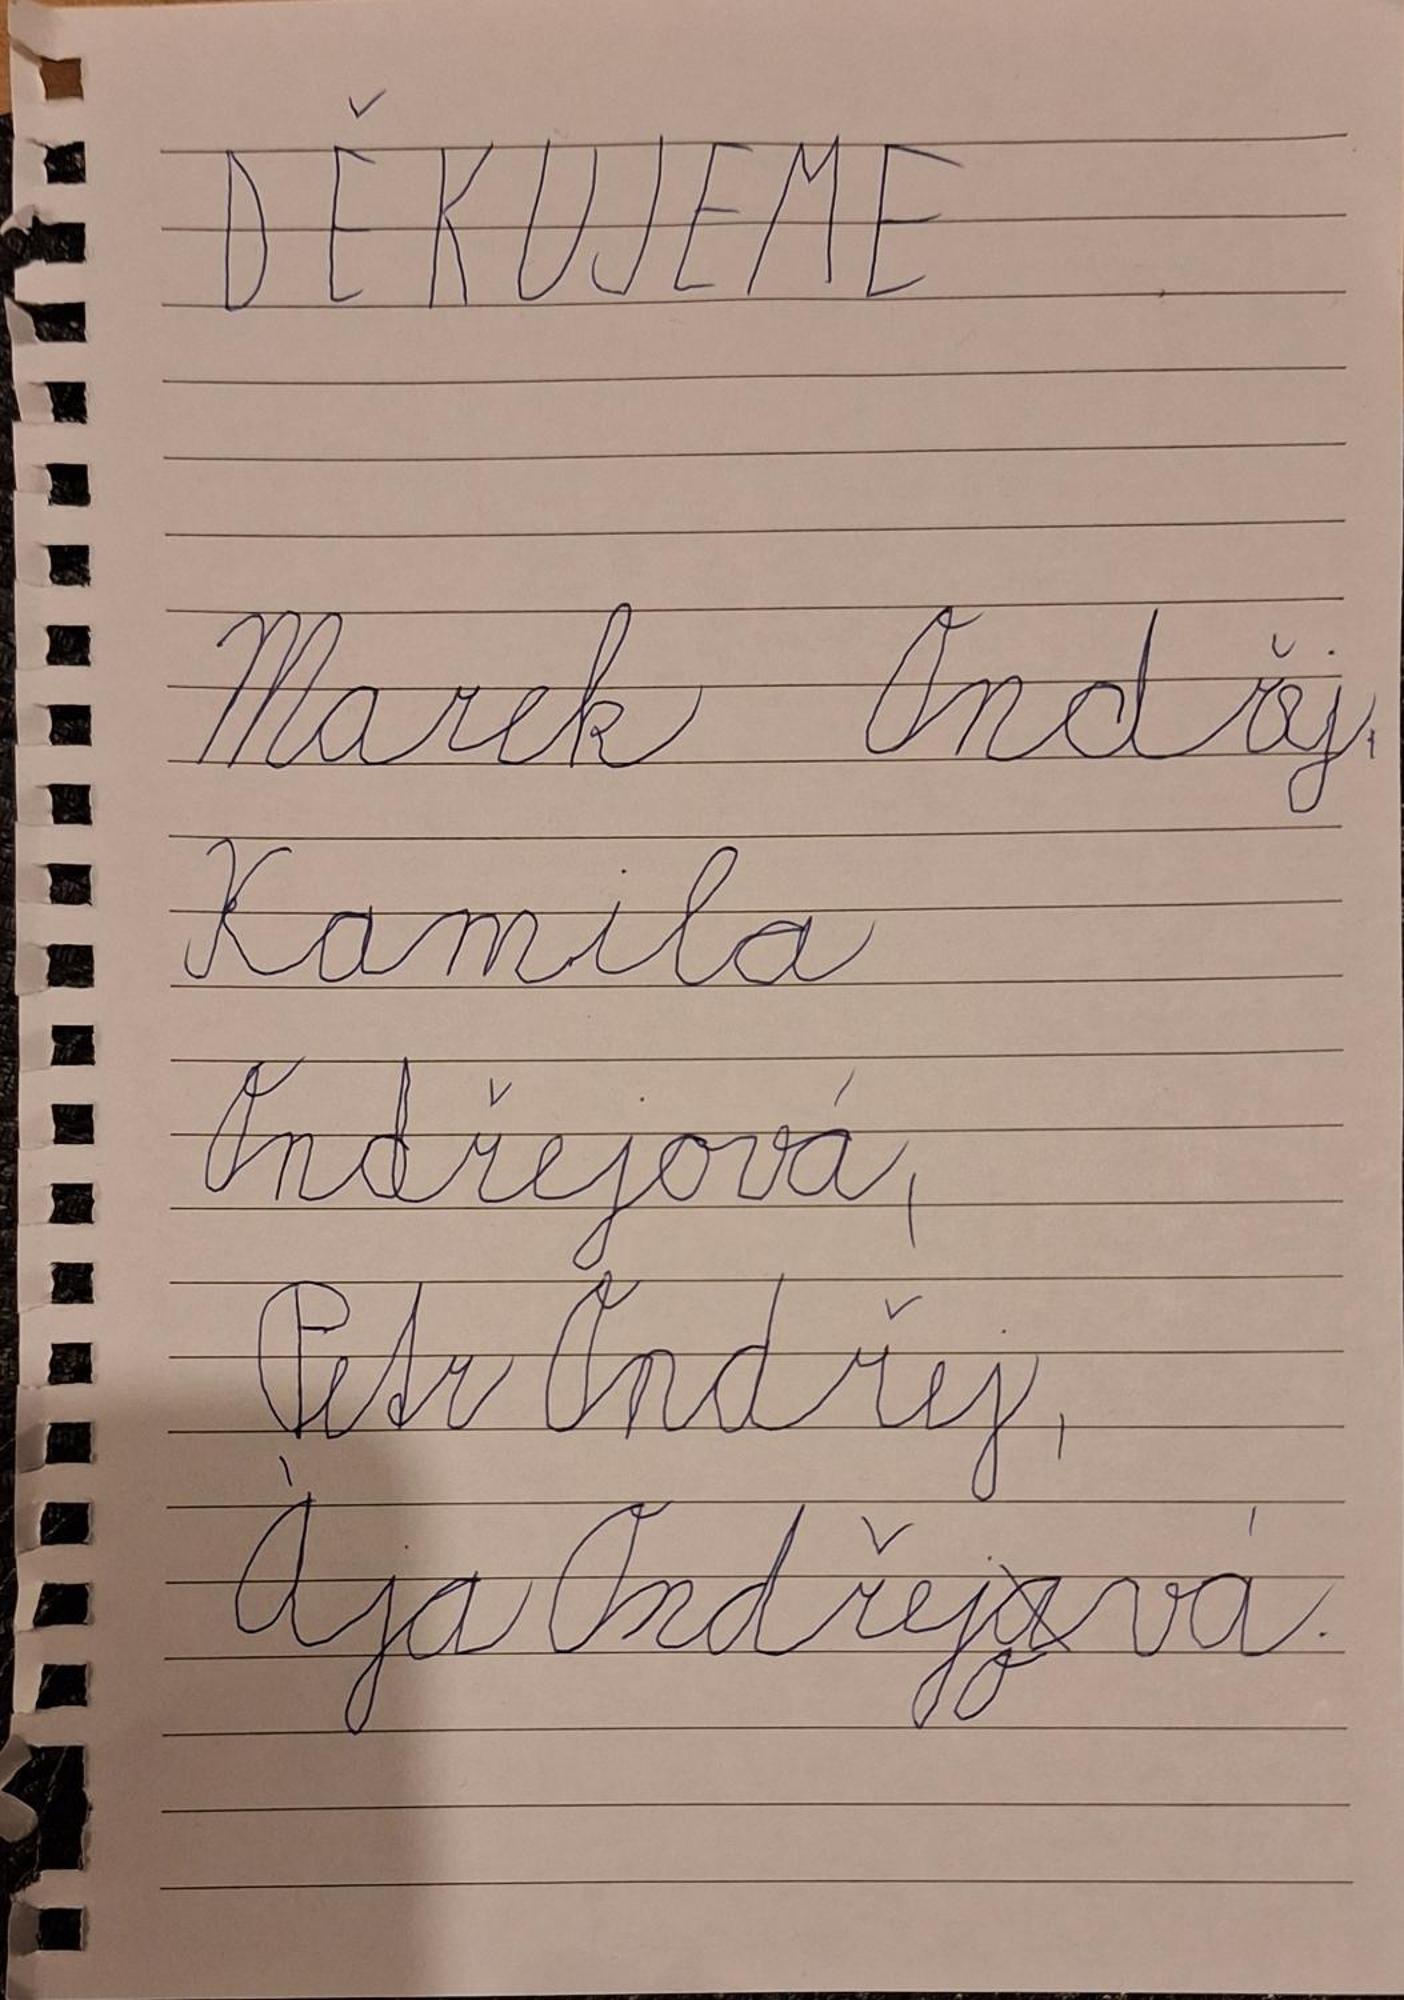 DĚKUJEME
Marek Ondřej,
Kamila
Ondřejová,
Petr Ondřej,
Ája Ondřejová.